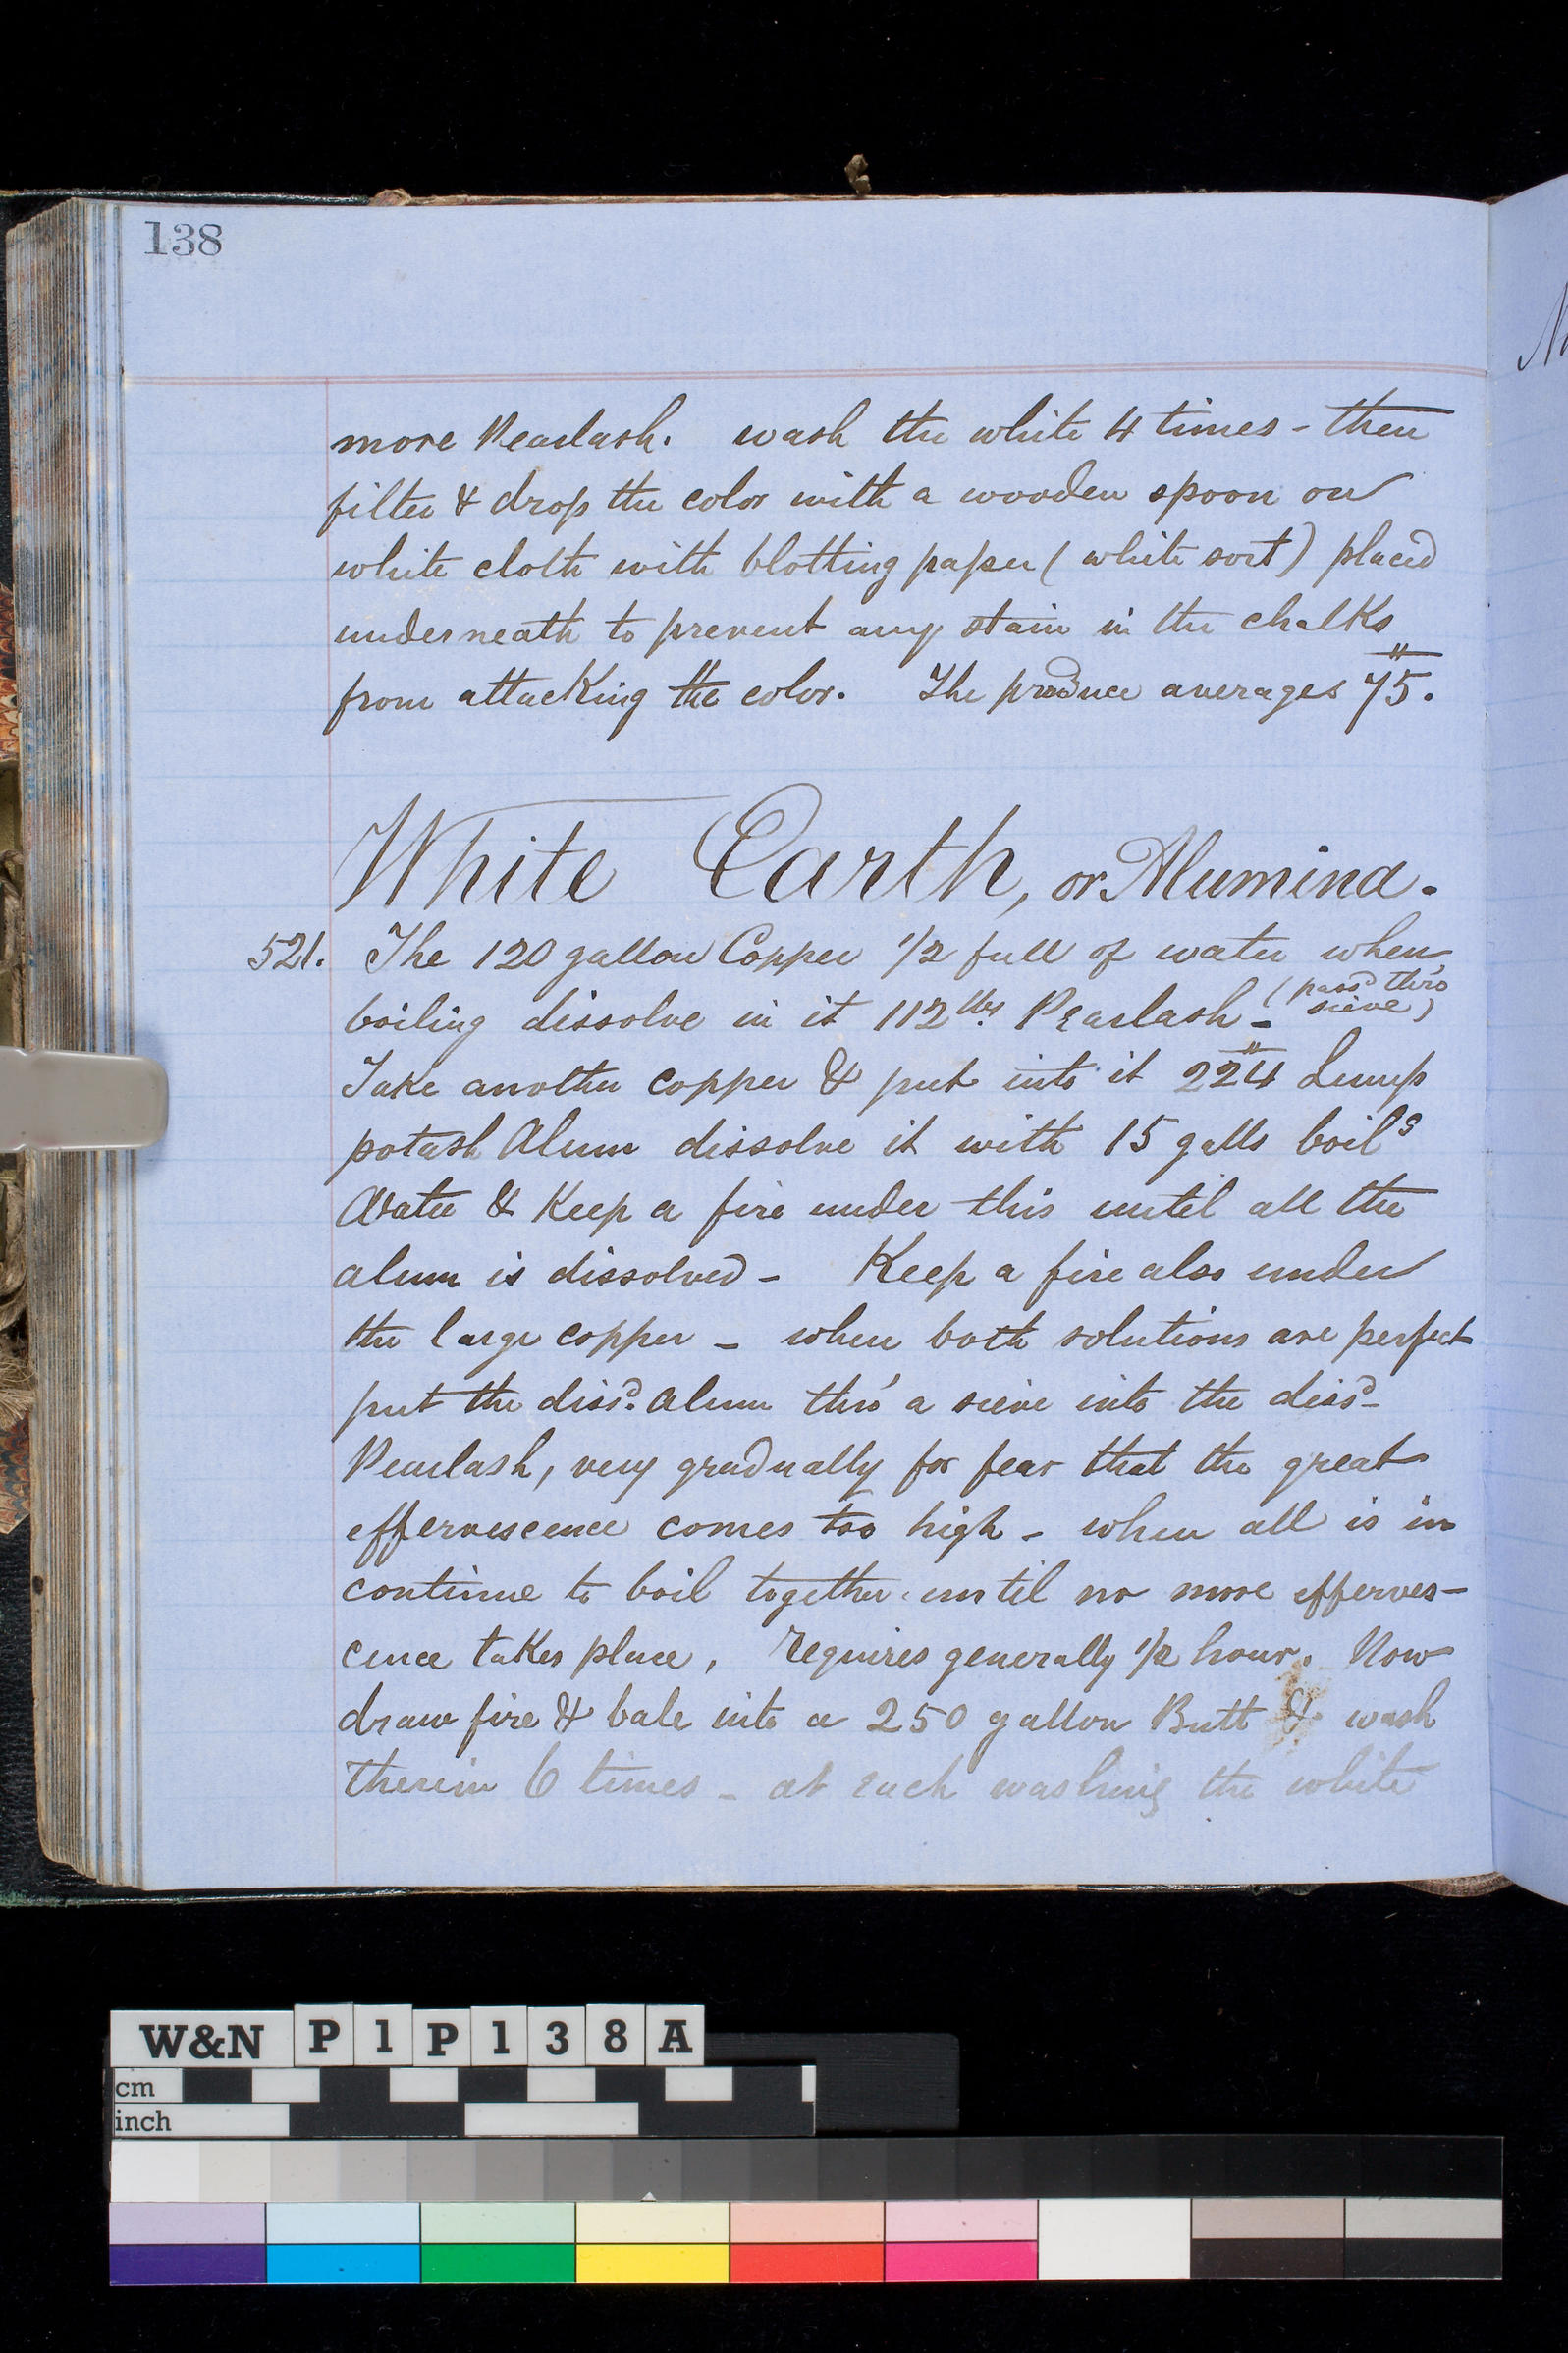 138
more Pearlash. wash the white 4 times - then
filter & drop the color with a wooden spoon on
white cloth with blotting paper ( white sort ) placed
underneath to prevent any stain in the chalks
from attacking the color. The produce averages 75.
White Earth, or Alumina.
521. The 120 gallon Copper 1/2 full of water when
boiling dissolve in it 112 lbs. Pearlash - ( passd thro' sieve )
Take another copper & put into it 224 Lump
potash Alum dissolve it with 15 galls boilg
Water & Keep a fire under this until all the
alum is dissolved - Keep a fire also under
the large copper - when both solutions are perfect
put the dissd. alum thro' a sieve into the dissd-
Pearlash, very gradually for fear that the great
effervescence comes too high - when all is in
continue to boil together until no more efferves-
cence takes place, requires generally 1/2 hour. Now
draw fire & bale into a 250 gallon Butt & wash
therein 6 times - at each washing the white
W&N P1P138A
cm
inch